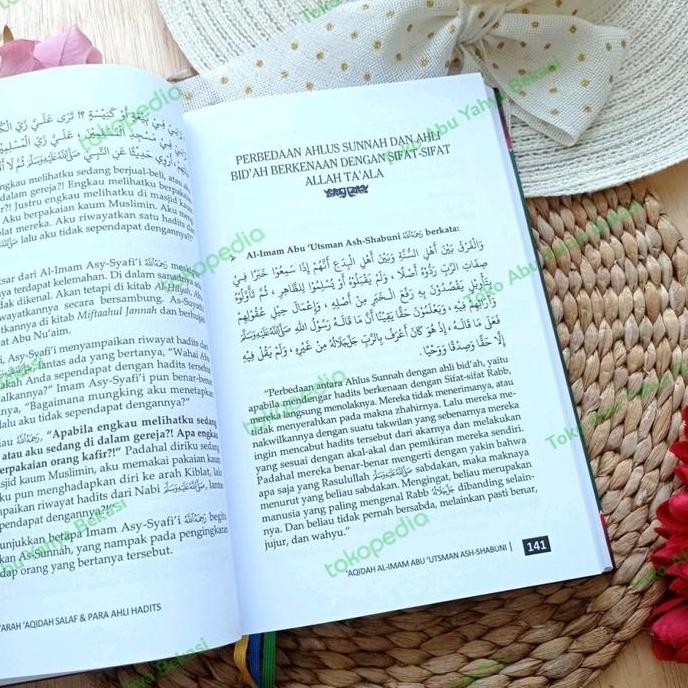 رَآنِي فِي بَيْعَةٍ أَوْ كَنِيسَةٍ ؟! تَرَى عَلَيَّ زِيَّ
فِي مَسْجِدِ الْمُسْلِمِينَ ، عَلَيَّ زِيُّ الْمُسْلِمِ
أَرْوِي حَدِيثًا عَنِ النَّبِيِّ ﷺ ثُمَّ لَا
ngkau melihatku sedang berjual-beli, atau
dalam gereja?! Engkau melihatku berpakaian
?! Justru engkau melihatku di masjid kaum
Aku berpakaian kaum Muslimin. Aku meng
blat mereka. Aku riwayatkan satu hadits dari
ﷺ lalu aku tidak sependapat dengannya?!"
sar dari Al-Imam Asy-Syafi'i
ya terdapat kelemahan. Di dalam sanadnya
dak dikenal. Akan tetapi di kitab Al-Hilyah, Abu
wayatkannya secara bersambung. As-Suyuthi
utkannya di kitab Miftaahul Jannah dan berhujjah
at Abu Nu'aim.
i, Asy-Syafi'i menyampaikan riwayat hadits dan
lantas ada yang bertanya, "Wahai Abu
kah Anda sependapat dengan hadits tersebut
alkannya?" Imam Asy-Syafi'i pun benar-benar
a, "Bagaimana mungking aku menetapkan
lalu aku tidak sependapat dengannya?"
"Apabila engkau melihatku sedang
atau aku sedang di dalam gereja?! Apa engkau
erpakaian orang kafir?!" Padahal diriku sedang
sjid kaum Muslimin, aku memakai pakaian kaum
ku pun menghadapkan diri ke arah Kiblat, lalu
mpaikan riwayat hadits dari Nabi ﷺ, lantas
ependapat dengannya?!"
unjukkan betapa Imam Asy-Syafi'i begitu
As-Sunnah, yang nampak pada pengingkaran
dap orang yang bertanya tersebut.
ARAH 'AQIDAH SALAF & PARA AHLI HADITS
PERBEDAAN AHLUS SUNNAH DAN AHLI
BID'AH BERKENAAN DENGAN SIFAT-SIFAT
ALLAH TA'ALA
Al-Imam Abu 'Utsman Ash-Shabuni رَحِمَهُ اللَّهُ berkata:
وَالْفَرْقُ بَيْنَ أَهْلِ السُّنَّةِ وَبَيْنَ أَهْلِ الْبِدَعِ أَنَّهُمْ إِذَا سَمِعُوا خَبَرًا فِي
صِفَاتِ الرَّبِّ رَدُّوهُ أَصْلًا ، وَلَمْ يَقْبَلُوْهُ أَوْ يُسْلِمُوا لِلظَّاهِرِ ، ثُمَّ تَأَوَّلُوْهُ
بِتَأْوِيْلٍ يَقْصُدُوْنَ بِهِ رَفْعَ الْخَبَرِ مِنْ أَصْلِهِ ، وَإِعْمَالَ حِيَلِ عُقُوْلِهِمْ
وَآرَائِهِمْ فِيْهِ ، وَيَعْلَمُوْنَ حَقًّا يَقِيْنًا أَنَّ مَا قَالَهُ رَسُوْلُ اللهِ ﷺ
فَعَلَى مَا قَالَهُ ، إِذْ هُوَ كَانَ أَعْرَفَ بِالرَّبِّ جَلَّ جَلَالُهُ مِنْ غَيْرِهِ ، وَلَمْ يَقُلْ فِيْهِ
إِلَّا حَقًّا وَصِدْقًا وَوَحْيًا .
"Perbedaan antara Ahlus Sunnah dengan ahli bid'ah, yaitu
apabila mendengar hadits berkenaan dengan Sifat-sifat Rabb,
mereka langsung menolaknya. Mereka tidak menerimanya, atau
tidak menyerahkan pada makna zhahirnya. Lalu mereka me-
nakwilkannya dengan suatu takwilan yang sebenarnya mereka
ingin mencabut hadits tersebut dari akarnya dan melakukan
yang sesuai dengan akal-akal dan pemikiran mereka sendiri.
Padahal mereka benar-benar mengerti dengan yakin bahwa
apa saja yang Rasulullah ﷺ sabdakan, maka maknaya
menurut yang beliau sabdakan. Mengingat, beliau merupakan
manusia yang paling mengenal Rabb جَلَّ جَلَالُهُ dibanding selain-
nya. Dan beliau tidak pernah bersabda, melainkan pasti benar,
jujur, dan wahyu."
'AQIDAH AL-IMAM ABU 'UTSMAN ASH-SHABUNI | 141
tokopedia
Toko Abu Yahya Bekasi